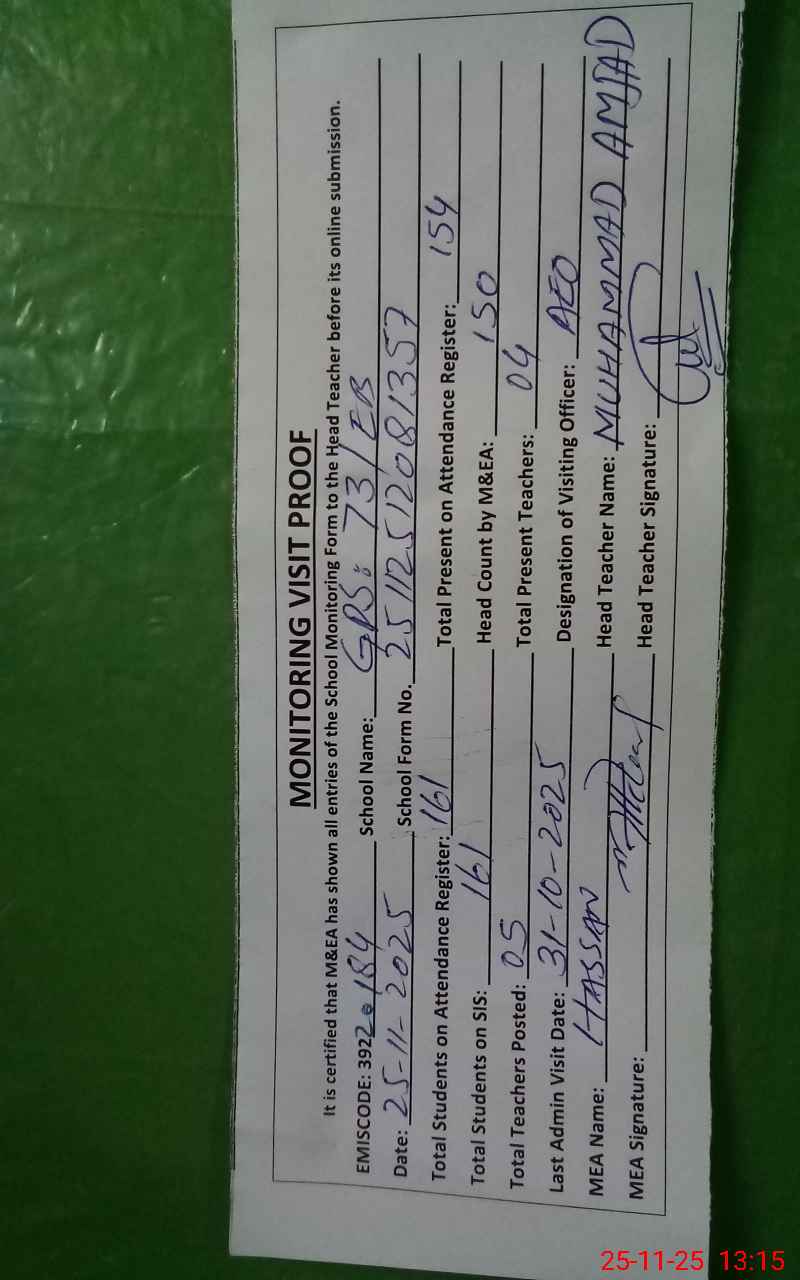 MONITORING VISIT PROOF
It is certified that M&EA has shown all entries of the School Monitoring Form to the Head Teacher before its online submission.
EMISCODE: 39220184 School Name: GPS: 73/EB
Date: 25-11-2025 School Form No. 251125120813 57
Total Students on Attendance Register: 161 Total Present on Attendance Register: 154
Total Students on SIS: 161 Head Count by M&EA: 150
Total Teachers Posted: 05 Total Present Teachers: 04
Last Admin Visit Date: 31-10-2025 Designation of Visiting Officer: AEO
MEA Name: HASSAN Head Teacher Name: MUHAMMAD AMJAD
MEA Signature: Head Teacher Signature:
25-11-25 13:15